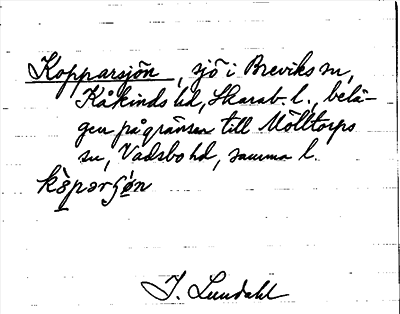 Kopparsjön, sjö i Breviks sn,
Kåkinds hd, Skarab. l., belä-
gen på gränsen till Mölltorps
sn, Vadsbo hd, samma l.
J. Lundahl